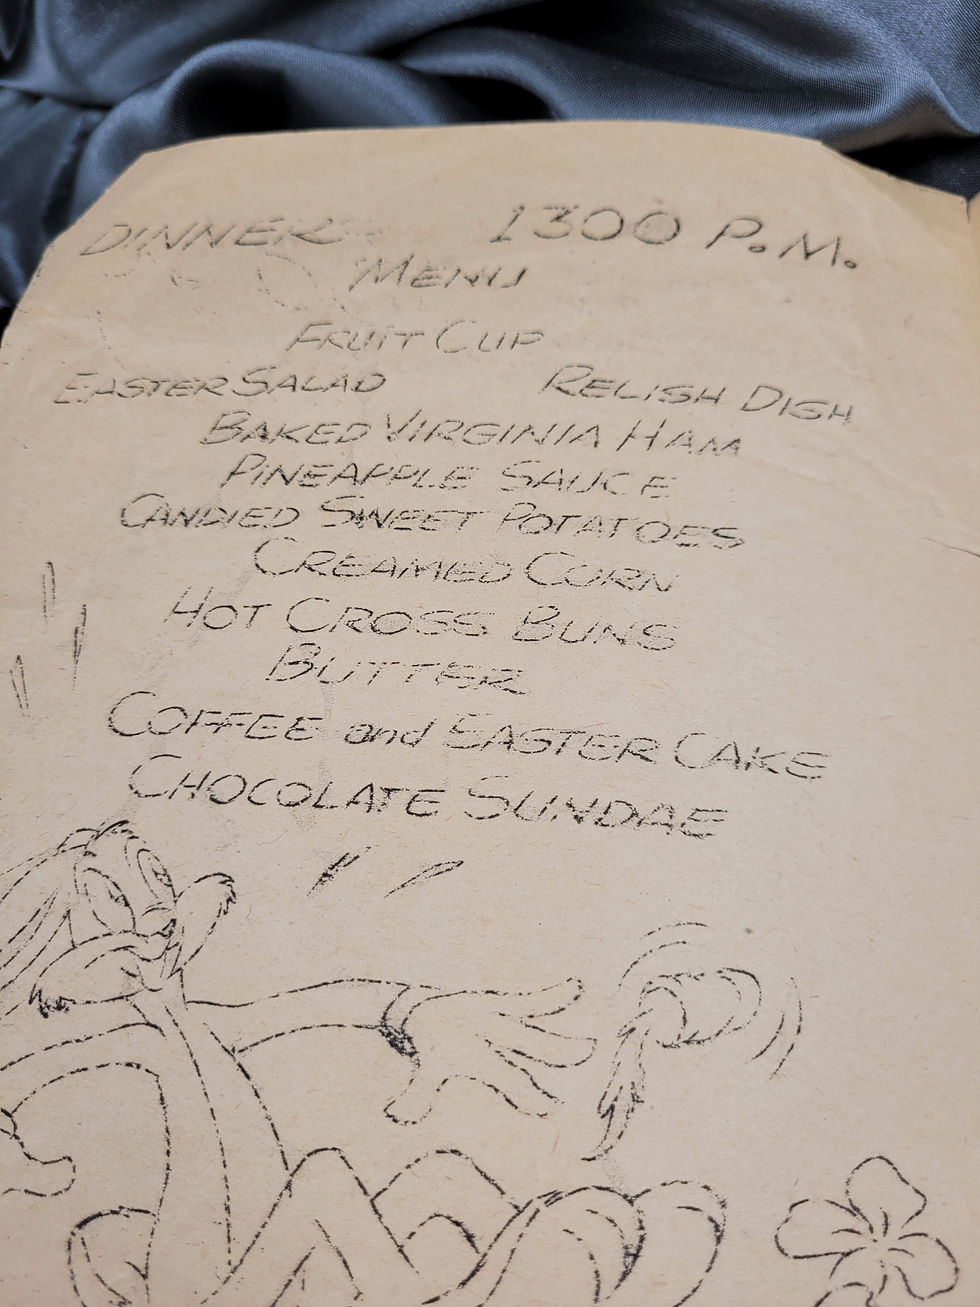 DINNER 1300 P.M.
MENU
FRUIT CUP
EASTER SALAD RELISH DISH
BAKED VIRGINIA HAM
PINEAPPLE SAUCE
CANDIED SWEET POTATOES
CREAMED CORN
HOT CROSS BUNS
BUTTER
COFFEE and EASTER CAKE
CHOCOLATE SUNDAE